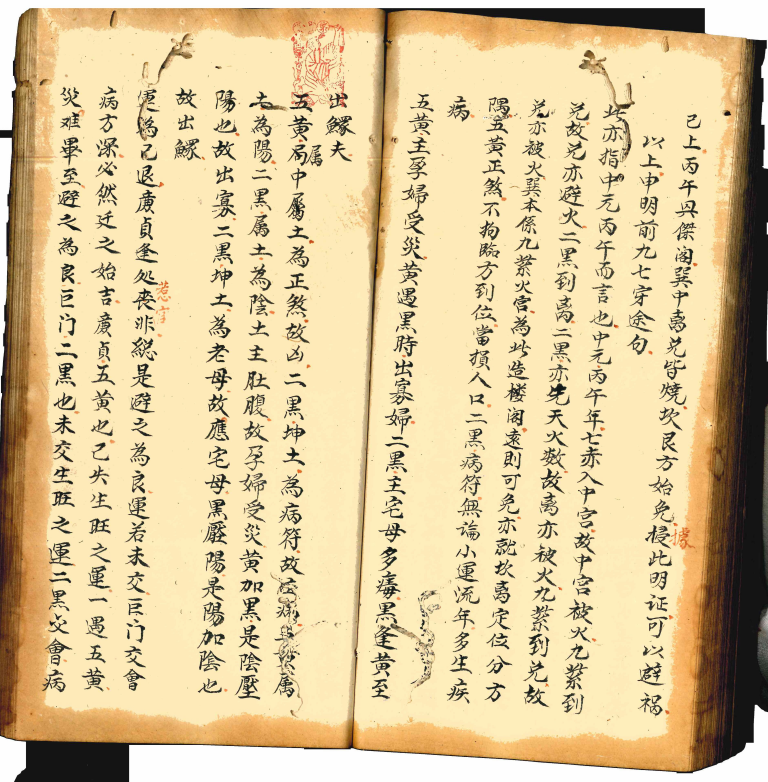 己上丙午與傑閣巽中离兌皆燒坎艮方始免授此明证可以辟祸
據
以上申明前九七穿途句
此亦指中元丙午而言也中元丙午年七赤入中宮故中宮被火九紫到
兌故兌亦避火二黑到离二黑亦先天火数故离亦被火九紫到兌故
兌亦被火巽本係九紫火宮為此造楼阁遠則可免亦就坎离定位分方
隅五黃正煞不拘臨方到位當損人口二黑病符無論小運流年多生疾
病
五黃主孕婦受災黃遇黑時出寡婦二黑主宅母多病黑逢黃至
出鰥夫
五黃局中屬土為正煞故凶二黑坤土為病符故
屬
土為陽二黑属土為陰土主肚腹故孕婦受災黃加黑是陰壓
陽也故出寡二黑坤土為老母故應宅母黑壓陽是陽加陰也
故出鰥
運為已退廉貞逢处喪非總是避之為良運若未交巨门交會
惹官
病方深必然迁之始吉廉貞五黃也已失生旺之運一遇五黃
災难畢至避之為良巨门二黑也未交生旺之運二黑交會病